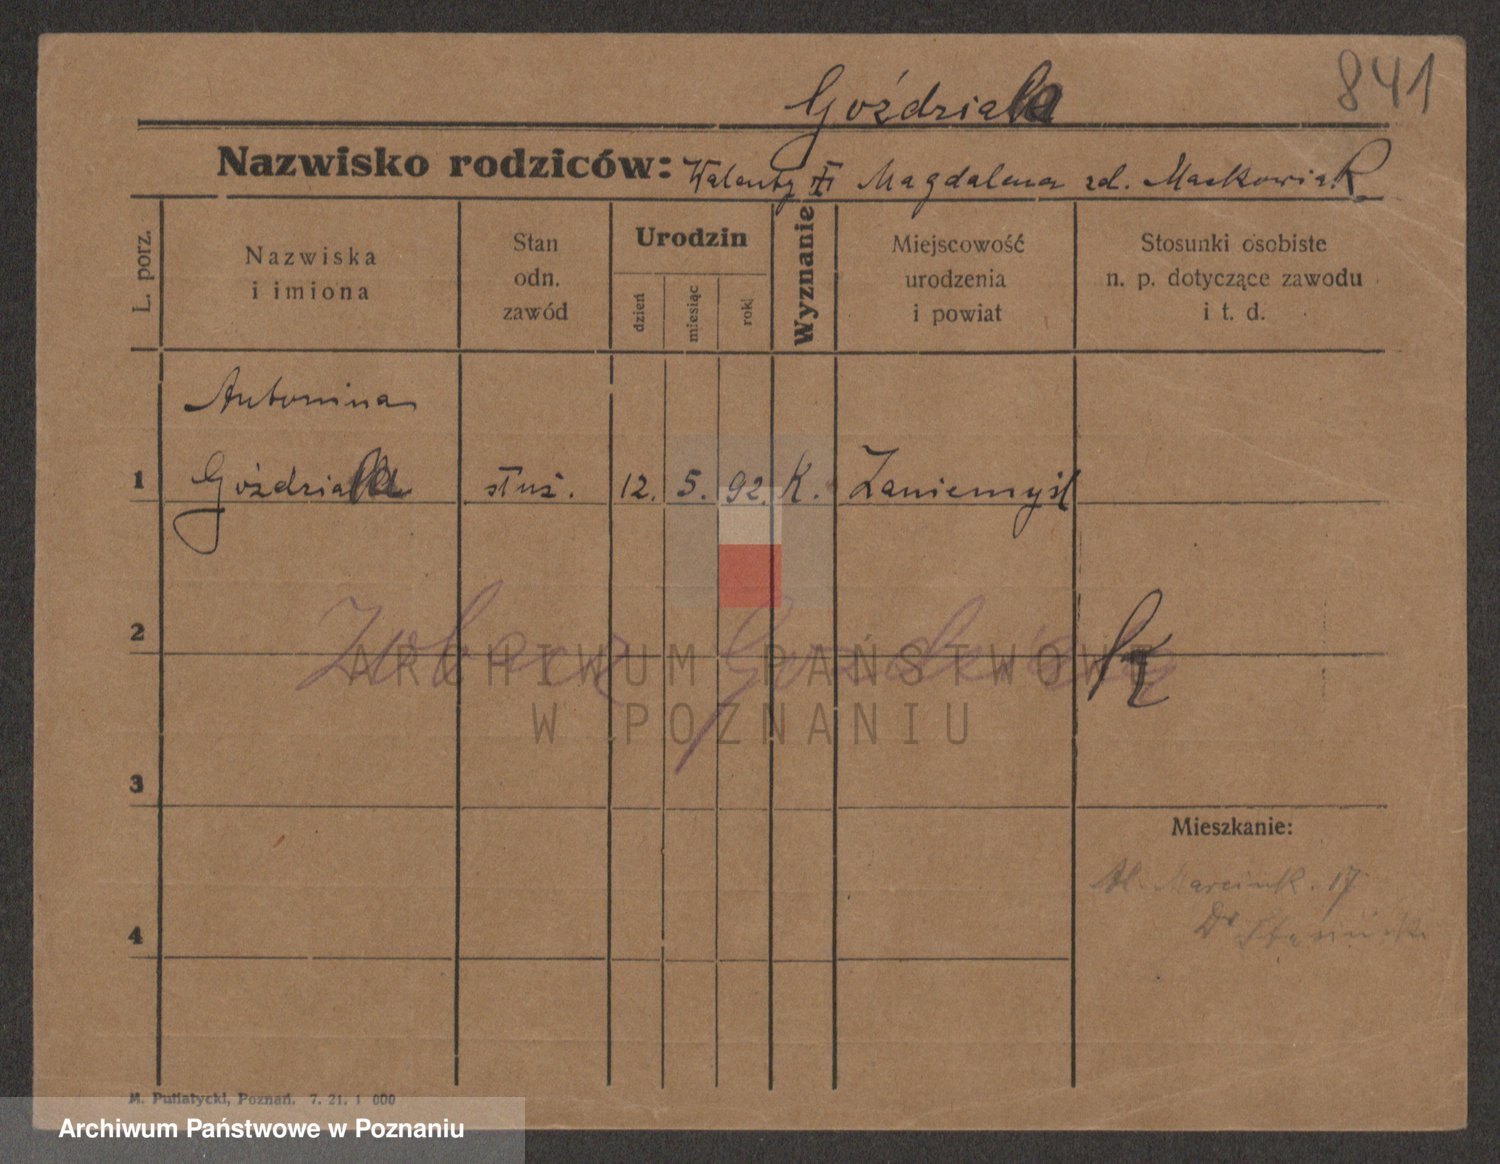 841
Goździak
Nazwisko rodziców: Walenty Magdalena zd. Maćkowiak
L. porz.
Nazwiska
i imiona
Stan
odn.
zawód
Urodzin
dzień
miesiąc
rok
Wyznanie
Miejscowość
urodzenia
i powiat
Stosunki osobiste
n. p. dotyczące zawodu
i t. d.
Antonina
1 Goździak służ. 12. 5. 92. K. Zaniemyśl
2 Zobacz
ARCHIWUM PAŃSTWOWE
W POZNANIU
3
Mieszkanie:
Al. Marcink. 17
Dr
4
M. Putiatycki, Poznań. 7. 21. 1 000
Archiwum Państwowe w Poznaniu